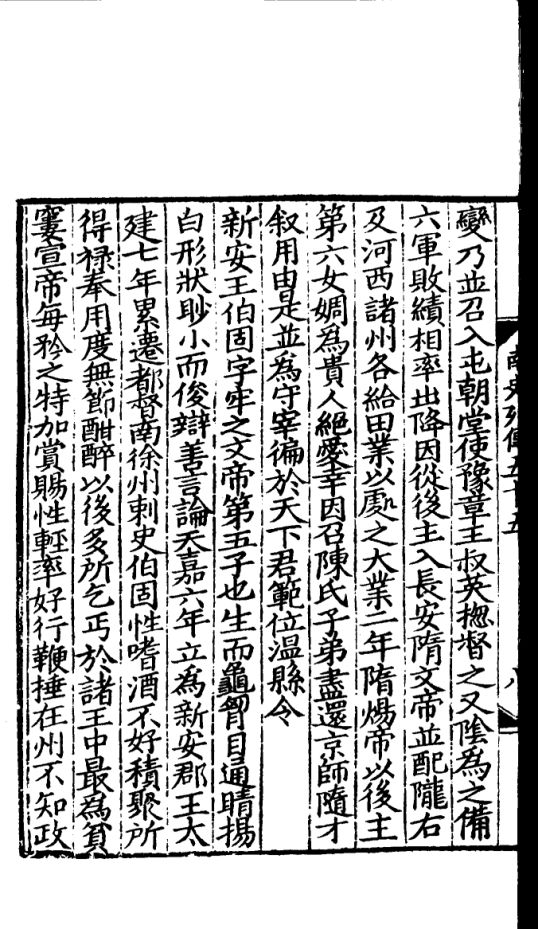 南史列傳五十五
八
變乃並召入屯朝堂使豫章王叔英揔督之又陰爲之備
六軍敗績相率出降因從後主入長安隋文帝並配隴右
及河西諸州各給田業以處之大業二年隋煬帝以後主
第六女婤爲貴人絕愛幸因召陳氏子弟盡還京師隨才
叙用由是並爲守宰徧於天下君範位溫縣令
新安王伯固字牢之文帝第五子也生而龜胷目通睛揚
白形狀眇小而俊辯善言論天嘉六年立爲新安郡王太
建七年累遷都督南徐州刺史伯固性嗜酒不好積聚所
得祿奉用度無節酣醉以後多所乞丐於諸王中最爲貧
窶宣帝每矜之特加賞賜性輕率好行鞭捶在州不知政